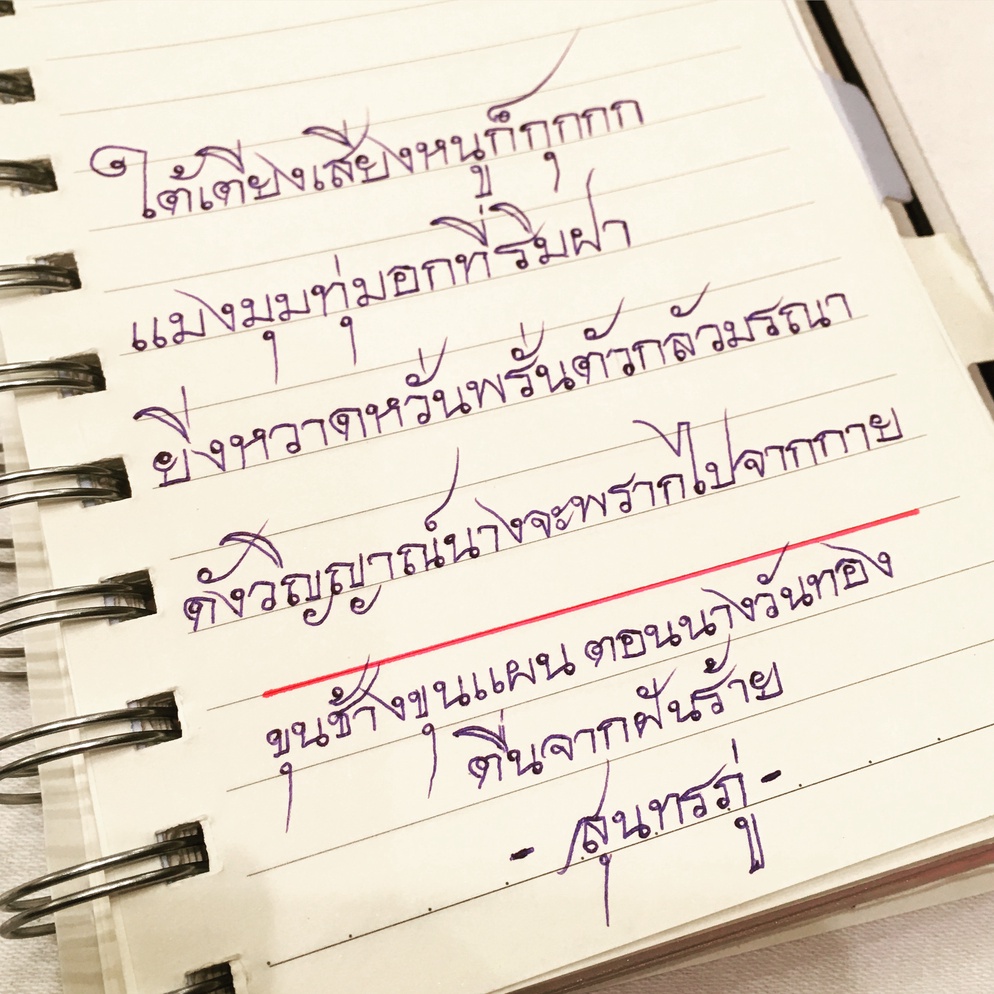 ใต้เตียงเสียงหนูก็กุกกก
แมงมุมทุ่มอกที่ริมฝา
ยิ่งหวาดหวั่นพรั่นตัวกลัวมรณา
ดังวิญญาณ์นางจะพรากไปจากกาย
ขุนช้างขุนแผน ตอนนางวันทอง
ตื่นจากฝันร้าย
- สุนทรภู่ -